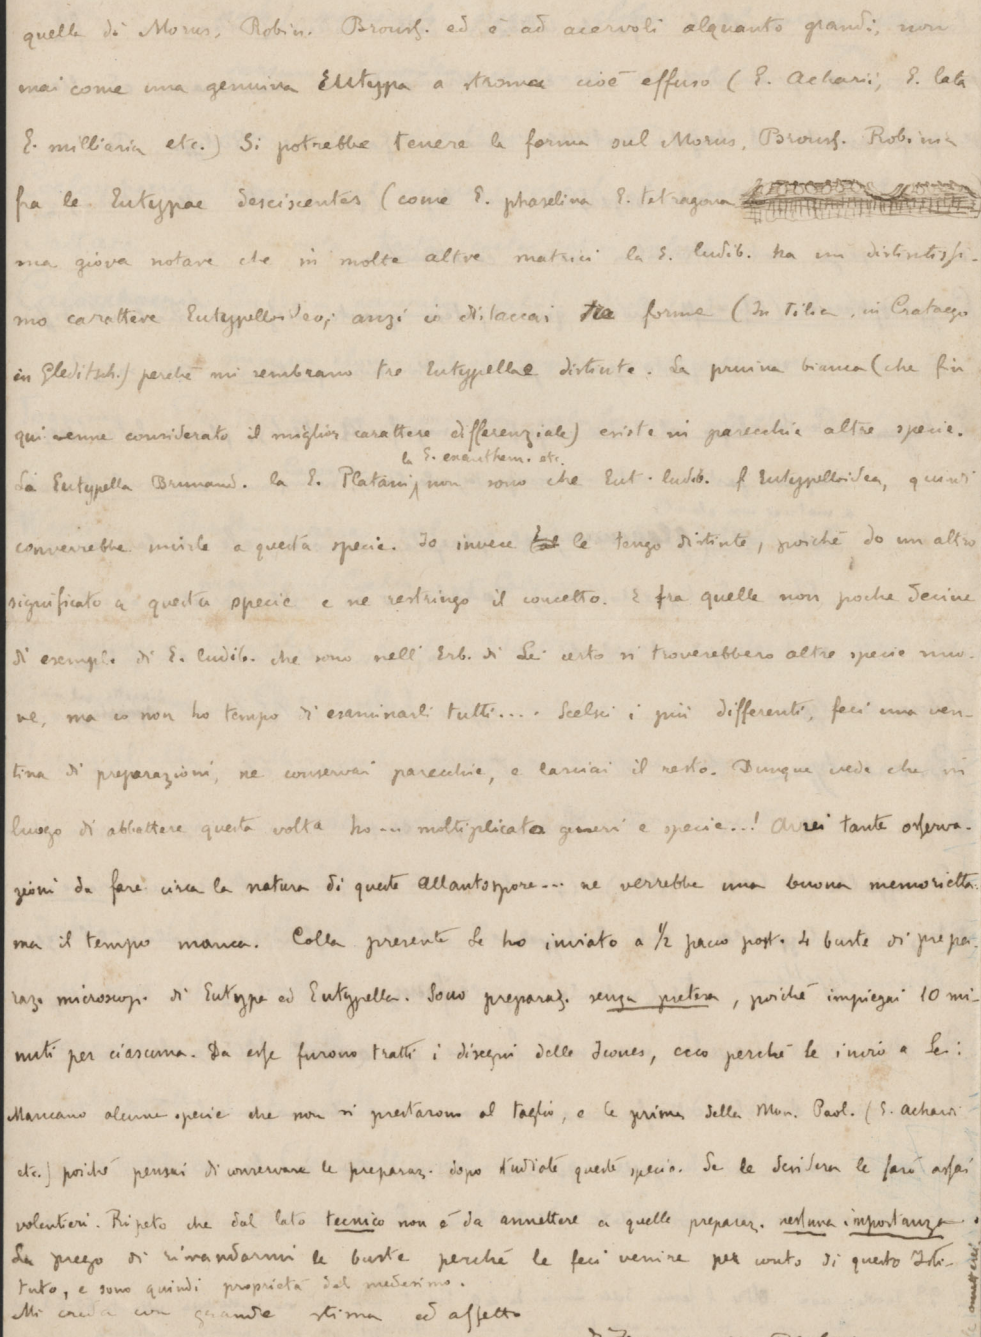 quelle di Morus, Robin. Brouss. ed è ad acervoli alquanto grandi, non
mai come una genuina Eutypa a stroma cioè effuso (E. Acharii, E. lata
E. milliaria etc.) Si potrebbe tenere la forma sul Morus, Brouss. Robinia
fra le Eutypae desciscentes (come E. phaselina E. tetragona
ma giova notare che in molte altre matrici la E. ludib. ha un distintissi-
mo carattere Eutypelloideo; anzi io distaccai tre forme (In Tilia, in Crataego
in Gleditsch.) perché mi sembrano tre Eutypellae distinte. La pruina bianca (che fin
qui venne considerato il miglior carattere differenziale) esiste in parecchie altre specie.
la E. exanthem. etc.
La Eutypella Brunaud. la E. Platani, non sono che Eut. ludib. f Eutypelloidea, quindi
converrebbe unirle a questa specie. Io invece le tengo distinte, poiché do un altro
significato a questa specie e ne restringo il concetto. E fra quelle non poche decine
di esempl. di E. ludib. che sono nell'Erb. di Lei certo si troverebbero altre specie nuo-
ve, ma io non ho tempo di esaminarli tutti.... Scelsi i più differenti, feci una ven-
tina di preparazioni, ne conservai parecchie, e lasciai il resto. Dunque vede che in
luogo di abbattere questa volta ho... moltiplicato generi e specie...! Avrei tante osserva-
zioni da fare circa la natura di queste Allantospore... ne verrebbe una buona memorietta.
ma il tempo manca. Colla presente Le ho inviato a 1/2 pacco post. 4 buste di prepa-
raz. microscop. di Eutypa ed Eutypella. Sono preparaz. senza pretesa, poiché impiegai 10 mi-
nuti per ciascuna. Da esse furono tratti i disegni delle Icones, ecco perché le invio a Lei:
Mancano alcune specie che non si prestarono al taglio, e le prime della Mon. Paol. (E. Acharii
etc.) poiché pensai di conservare le preparaz. dopo studiate queste specie. Se le desidera le farò assai
volentieri. Ripeto che dal lato tecnico non è da annettere a quelle preparaz. nessuna importanza.
La prego di rimandarmi le buste perché le feci venire per conto di questo Isti-
tuto, e sono quindi proprietà del medesimo.
Mi creda con grande stima ed affetto